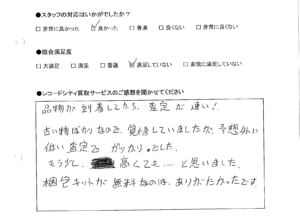 ●スタッフの対応はいかがでしたか？
□ 非常に良かった ☑ 良かった □ 普通 □ 良くない □ 非常に良くない
●総合満足度
□ 大満足 □ 満足 □ 普通 ☑ 満足していない □ 非常に満足していない
●レコードシティ買取サービスのご感想を聞かせてください
品物が到着してから、査定が速い！
古い物ばかりなので、覚悟していましたが、予想外に
低い査定でガッカリ。でした。
もう少し、高くても…。と思いました。
梱包キットが無料なのは、ありがたかったです。